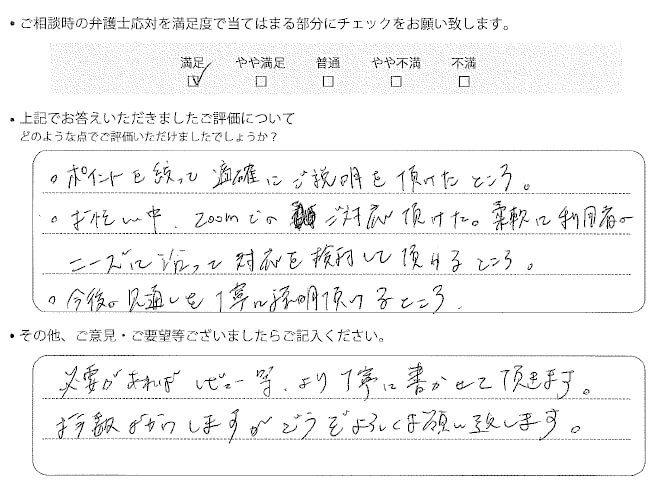 ・ご相談時の弁護士応対を満足度で当てはまる部分にチェックをお願い致します。
満足 やや満足 普通 やや不満 不満
☑ □ □ □ □
・上記でお答えいただきましたご評価について
どのような点でご評価いただけましたでしょうか？
○ポイントを絞って適確にご説明を頂けたところ。
○お忙しい中、Zoomでのご対応頂けた。柔軟に利用者の
ニーズに沿って対応を検討して頂けるところ。
○今後の見通しを丁寧に説明頂けるところ.
・その他、ご意見・ご要望等ございましたらご記入ください。
必要があればレビュー等、より丁寧に書かせて頂きます。
お手数おかけしますがどうぞよろしくお願い致します。